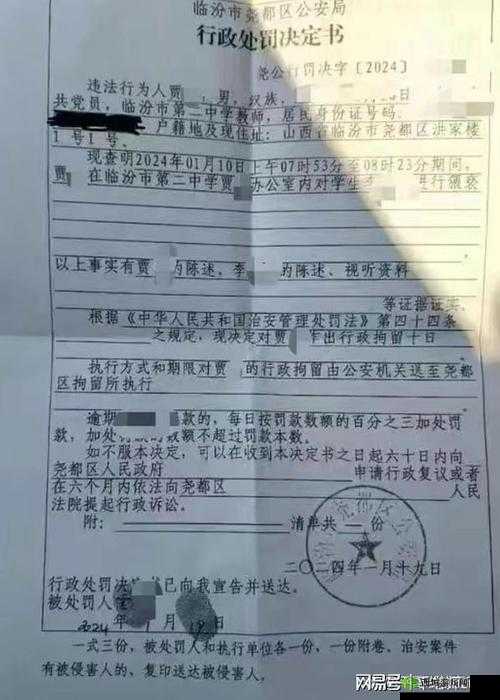 临汾市尧都区公安局
行政处罚决定书
尧公行罚决字〔2024〕
违法行为人贾 ，男，汉族， 日
共党员，临汾市第二中学教师，居民身份证号码:
户籍地及现住址：山西省临汾市尧都区洪家楼
1号1号。
现查明2024年01月10日上午07时53分至08时23分期间，
贾 在临汾市第二中学贾 办公室内对学生李 进行猥亵
以上事实有贾 的陈述、李 的陈述、视听资料
等证据证实。
根据《中华人民共和国治安管理处罚法》第四十四条
之规定，现决定对贾 作出行政拘留十日
执行方式和期限对贾 的行政拘留由公安机关送至尧都
区拘留所执行
逾期 款的，每日按罚款数额的百分之三加处罚
款，加处罚 数额不超过罚款本数。
如不服本决定，可以在收到本决定书之日起六十日内向
尧都区人民政府 申请行政复议或者
在六个月内依法向尧都区 人民
法院提起行政诉讼。
附： 清单共 份
二〇二四年一月十九日
行政处罚决 书已向我宣告并送达。
被处罚人
2024年 1月 19日
一式三份，被处罚人和执行单位各一份，一份附卷。治安案件
有被侵害人的，复印送达被侵害人。
网易号